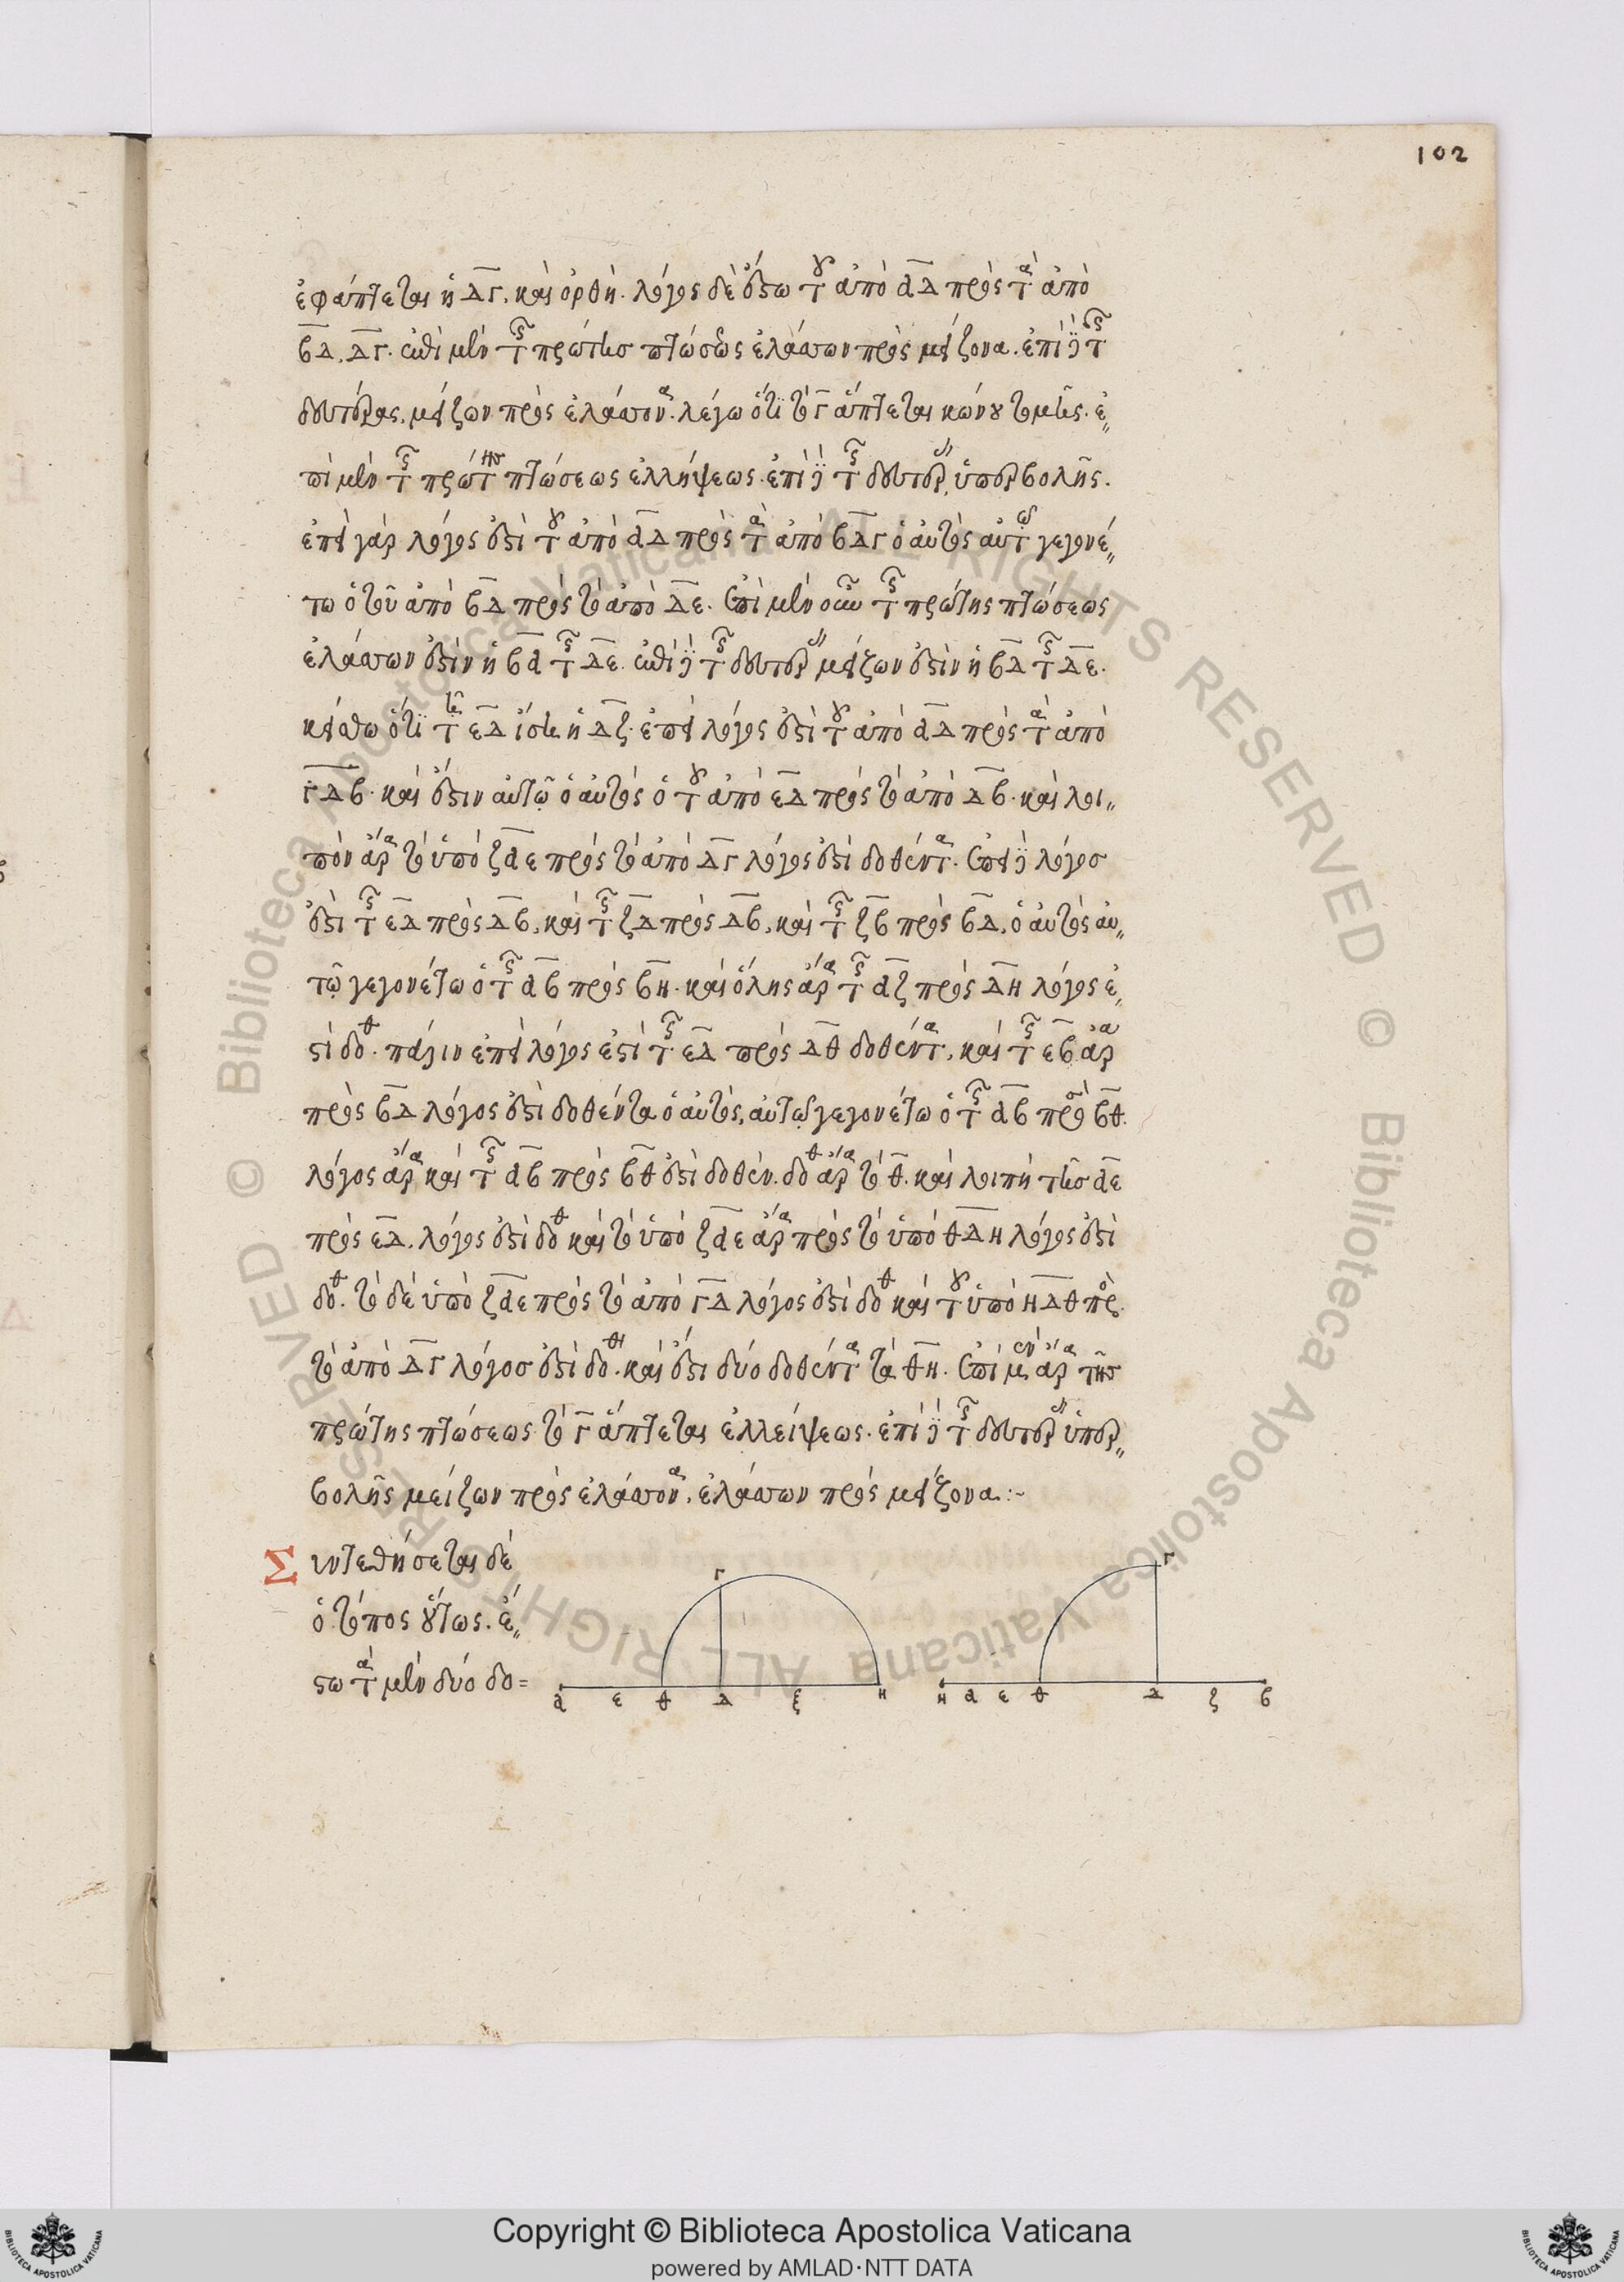 102
ἐφάπτεται ἡ ΔΓ. καὶ ὀρθὴ. λόγος δὲ ἔστω τοῦ ἀπὸ ΑΔ πρὸς τὰ ἀπὸ
ΒΔ, ΔΓ. ἐπὶ μὲν τῆς πρώτης πτώσεως ἐλάσσων πρὸς μείζονα. ἐπὶ δὲ τῆς
δευτέρας, μείζων πρὸς ἐλάσσονα. λέγω ὅτι τὸ Γ ἅπτεται κώνου τομῆς. ἐ
πὶ μὲν τῆς πρώτης πτώσεως ἐλλήψεως. ἐπὶ δὲ τῆς δευτέρας ὑπερβολῆς.
ἐπεὶ γὰρ λόγος ἐστὶ τοῦ ἀπὸ ΑΔ πρὸς τὰ ἀπὸ ΒΔΓ ὁ αὐτὸς αὐτῷ γεγονέ
τω ὁ τοῦ ἀπὸ ΒΔ πρὸς τὸ ἀπὸ ΔΕ. ἐπὶ μὲν οὖν τῆς πρώτης πτώσεως
ἐλάσσων ἐστὶν ἡ ΒΔ τῆς ΔΕ. ἐπὶ δὲ τῆς δευτέρας μείζων ἐστὶν ἡ ΒΔ τῆς ΔΕ.
κείσθω ὅτι τῇ ΕΔ ἴση ἡ ΔΖ. ἐπεὶ λόγος ἐστὶ τοῦ ἀπὸ ΑΔ πρὸς τὰ ἀπὸ
ΓΔΒ. καὶ ἔστιν αὐτῷ ὁ αὐτὸς ὁ τοῦ ἀπὸ ΕΔ πρὸς τὸ ἀπὸ ΔΒ. καὶ λοι
πὸν ἄρα τὸ ὑπὸ ΖΑΕ πρὸς τὸ ἀπὸ ΔΓ λόγος ἐστὶ δοθέντα. ἐπεὶ δὲ λόγος
ἐστὶ τῆς ΕΔ πρὸς ΔΒ, καὶ τῆς ΖΔ πρὸς ΔΒ, καὶ τῆς ΖΒ πρὸς ΒΔ, ὁ αὐτὸς αὐ
τῷ γεγονέτω ὁ τῆς ΑΒ πρὸς ΒΗ. καὶ ὅλης ἄρα τῆς ΑΖ πρὸς ΔΗ λόγος ἐ
στὶ δοθ. πάλιν ἐπεὶ λόγος ἐστὶ τῆς ΕΔ πρὸς ΔΘ δοθέντα, καὶ τῆς ΕΒ ἄρα
πρὸς ΒΔ λόγος ἐστὶ δοθέντα ὁ αὐτὸς, αὐτῷ γεγονέτω ὁ τῆς ΑΒ πρὸς ΒΘ.
λόγος ἄρα καὶ τῆς ΑΒ πρὸς ΒΘ ἐστὶ δοθέν. δοθ ἄρα τὸ Θ. καὶ λοιπὴ τῆς ΑΕ
πρὸς ΕΔ. λόγος ἐστὶ δοθ καὶ τὸ ὑπὸ ΖΑΕ ἄρα πρὸς τὸ ὑπὸ ΘΔΗ λόγος ἐστὶ
δοθ. τὸ δὲ ὑπὸ ΖΑΕ πρὸς τὸ ἀπὸ ΓΔ λόγος ἐστὶ δοθ καὶ τοῦ ὑπὸ ΗΔΘ πρὸς
τὸ ἀπὸ ΔΓ λόγος ἐστὶ δοθ. καὶ ἔστι δύο δοθέντα τὰ ΘΗ. ἐπὶ μὲν ἄρα τῆς
πρώτης πτώσεως τὸ Γ ἅπτεται ἐλλείψεως. ἐπὶ δὲ τῆς δευτέρας ὑπερ
βολῆς μείζων πρὸς ἐλάσσονα. ἐλάσσων πρὸς μείζονα :~
Συντεθήσεται δὲ
ὁ τόπος οὕτως. ἔ
στω τὰ μὲν δύο δο
Γ
Α Ε Θ Δ Ζ Η
Γ
Η Α Ε Θ Δ Ζ Β
Copyright © Biblioteca Apostolica Vaticana
powered by AMLAD·NTT DATA